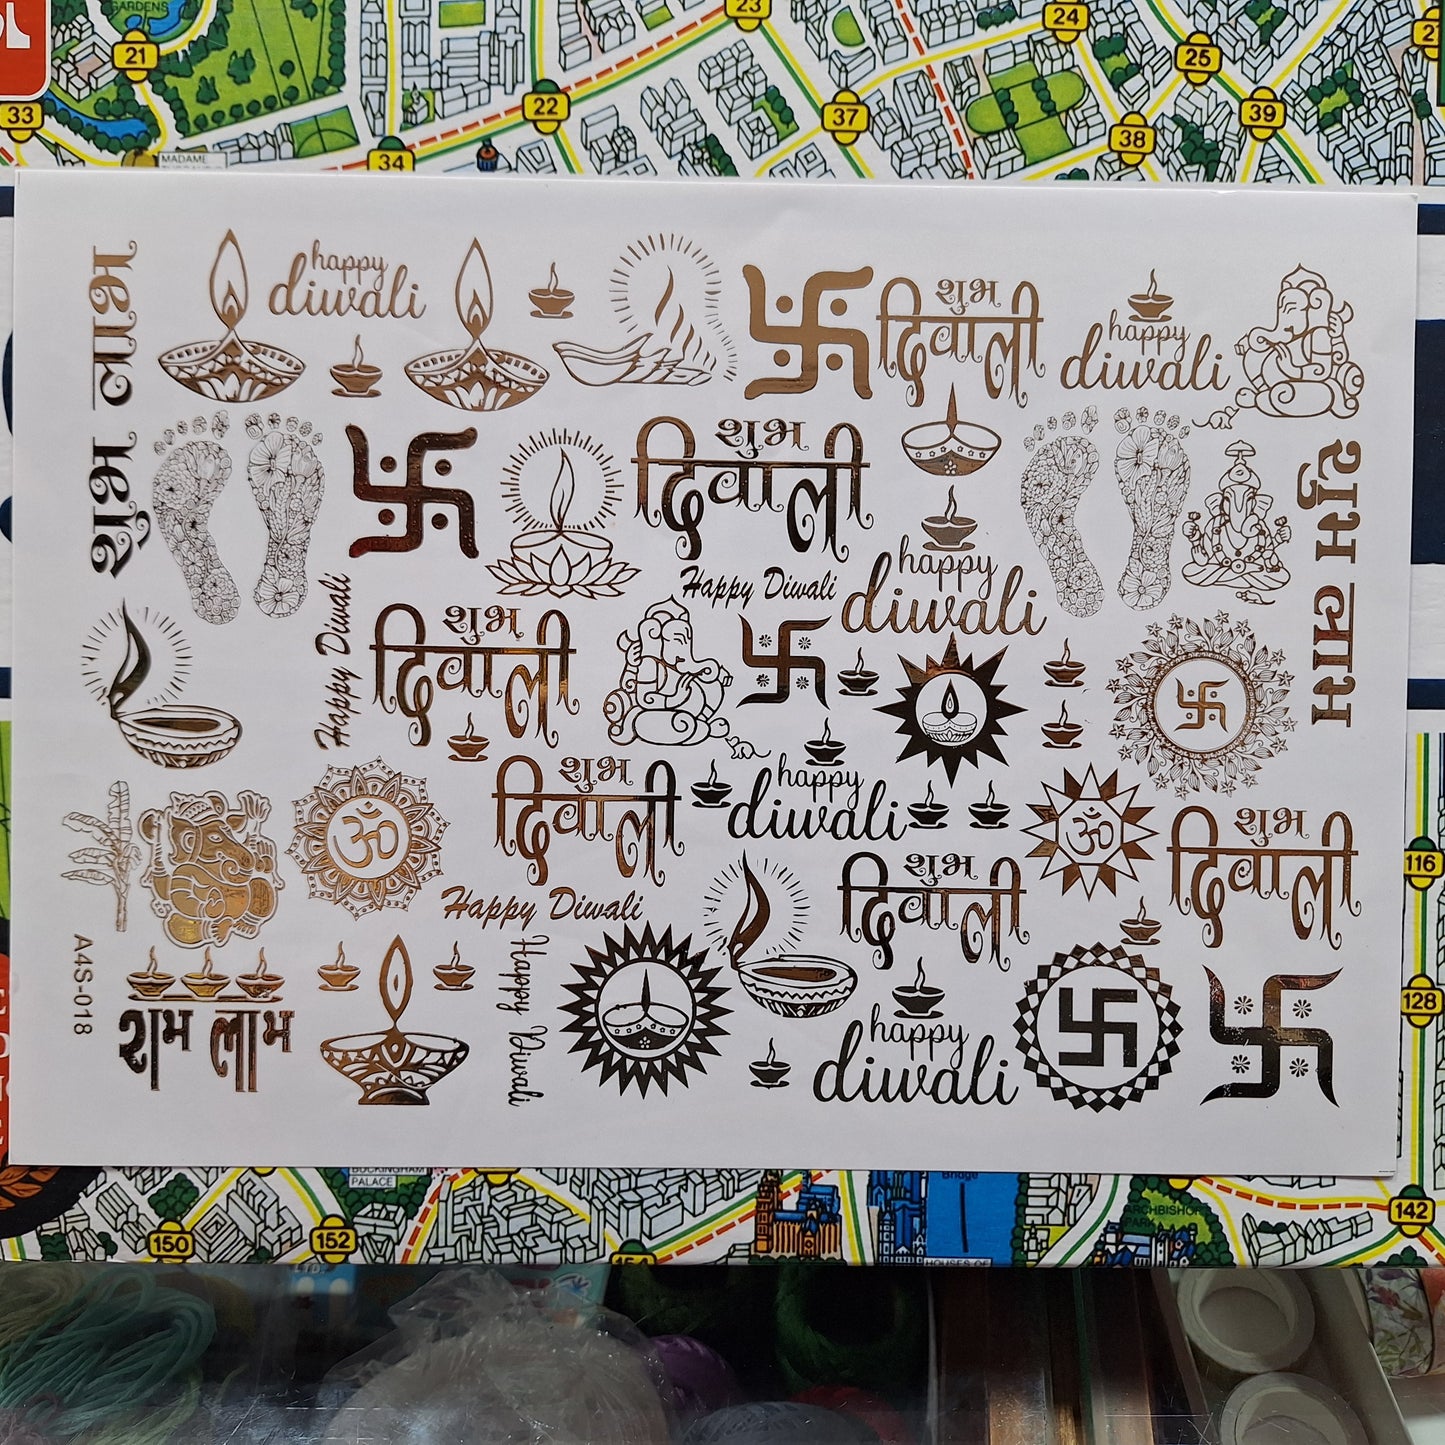 GARDENS
21
33
MADAME
34
22
23
37
24
25
38
39
शुभ लाभ
happy
diwali
शुभ
दिवाली
happy
diwali
शुभ
दिवाली
शुभ लाभ
happy
diwali
Happy Diwali
Happy Diwali
शुभ
दिवाली
शुभ
दिवाली
happy
diwali
ॐ
ॐ
शुभ
दिवाली
शुभ
दिवाली
Happy Diwali
A4S-018
शुभ लाभ
Happy Diwali
happy
diwali
116
128
142
BUCKINGHAM
PALACE
150
152
151
Bridge
HOUSES OF
ARCHBISHOP
PARK